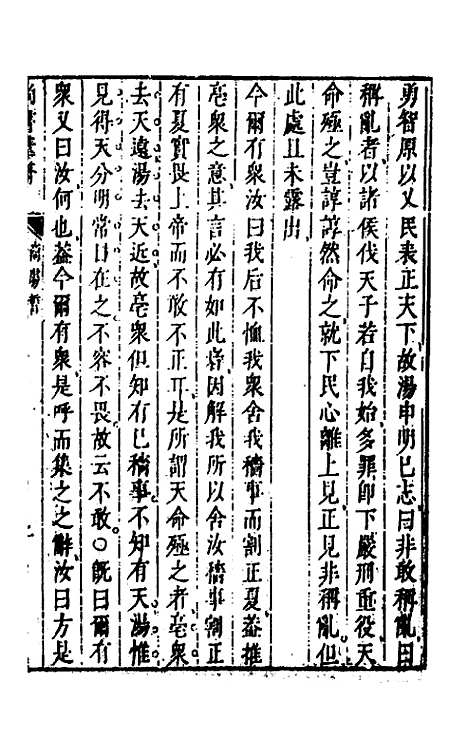 勇智原以乂民表正天下故湯申明已志曰非敢稱亂曰
稱亂者以諸侯伐天子若自我始多罪卽下嚴刑重役天
命殛之豈諄諄然命之就下民心離上見正見非稱亂但
此處且未露出
今爾有衆汝曰我后不恤我衆舍我穡事而割正夏葢推
亳衆之意其言必有如此者因解我所以舍汝穡事割正
有夏實畏上帝而不敢不正耳是所謂天命殛之者亳衆
去天遠湯去天近故亳衆但知有已穡事不知有天湯惟
見得天分明常日在之不容不畏故云不敢○旣曰爾有
衆又曰汝何也葢今爾有衆是呼而集之之辭汝曰方是
尚書
湯誓